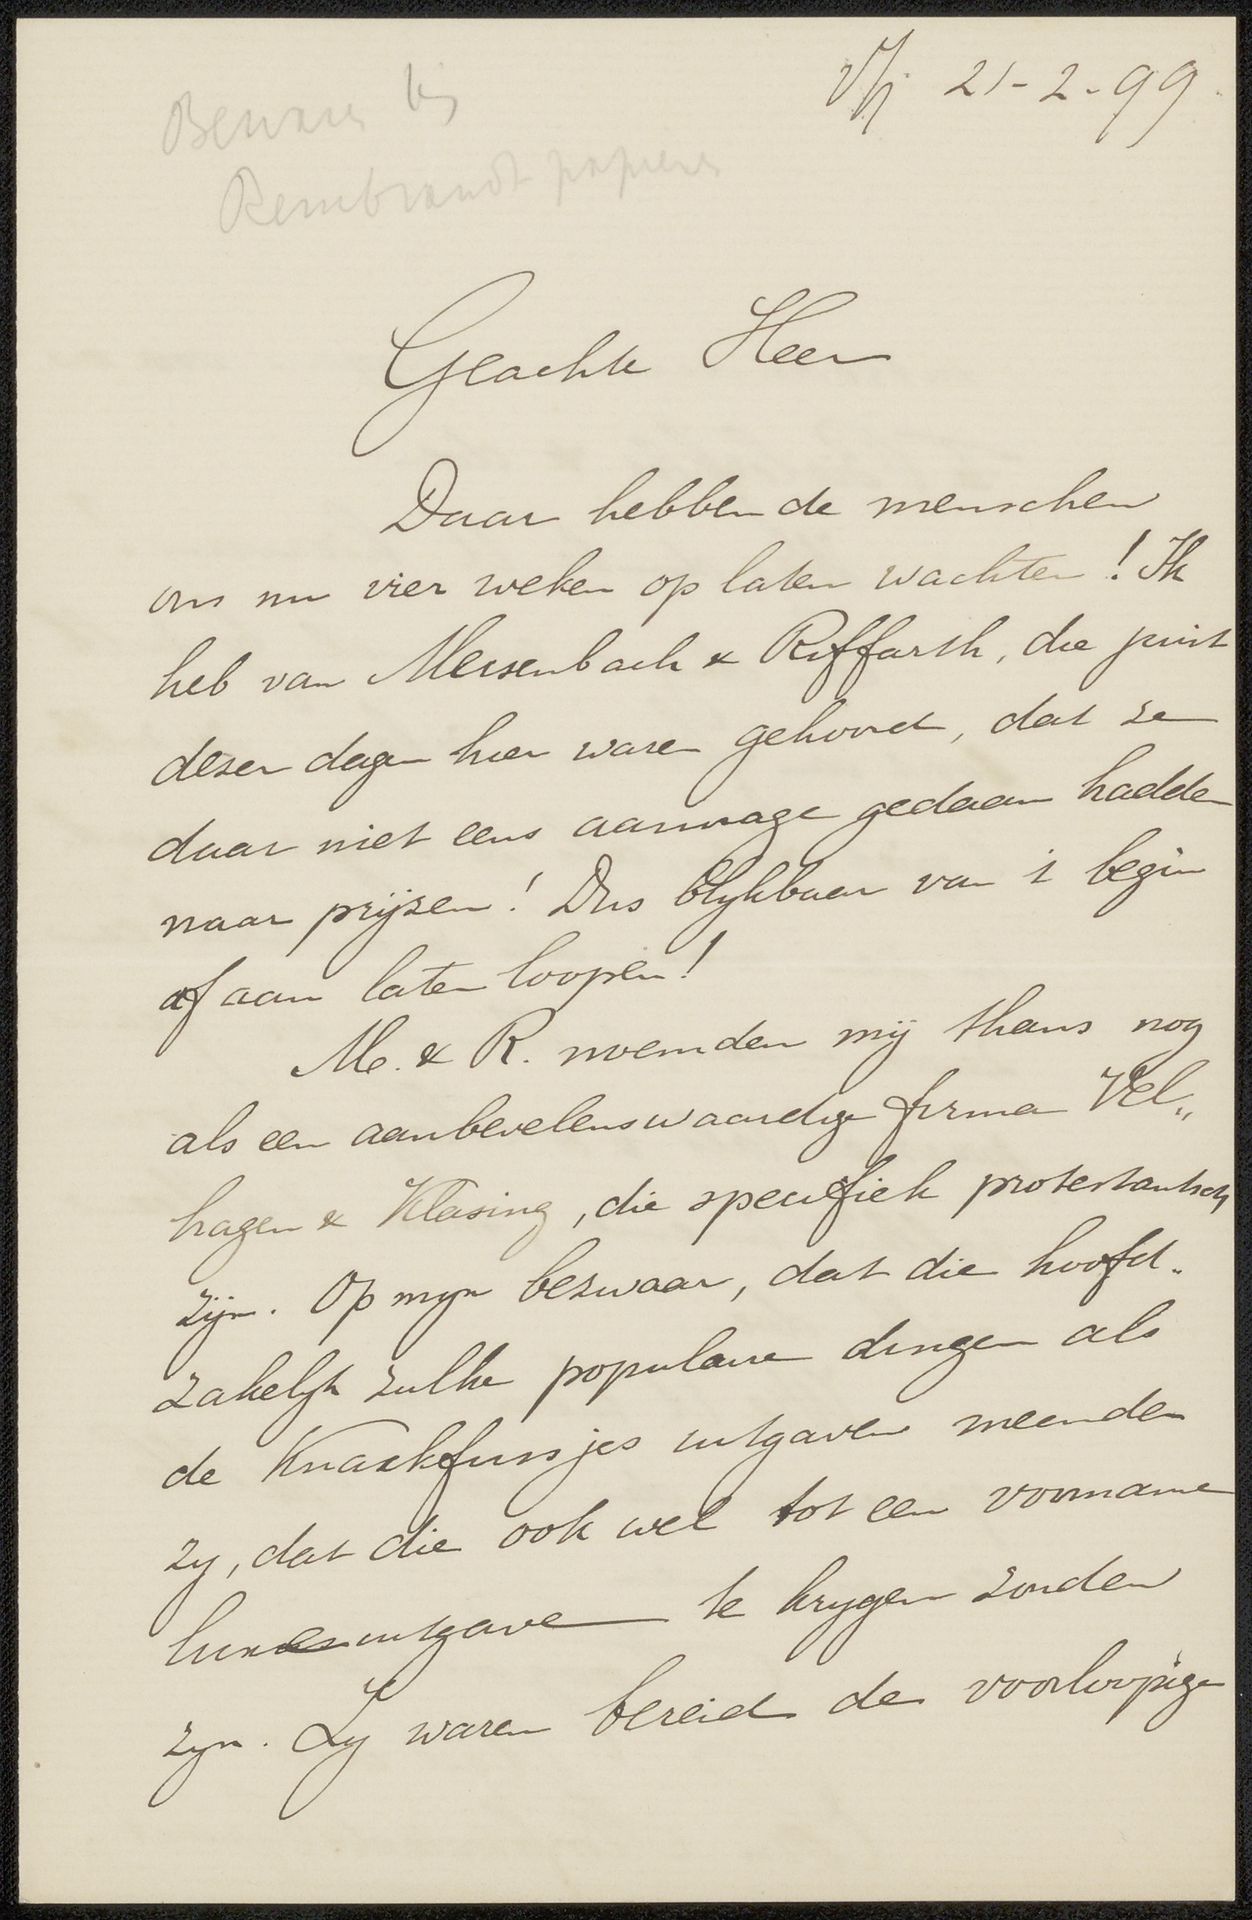 21-2-99
Bewaren bij
Rembrandt papieren
Geachte Heer
Daar hebben de menschen
ons nu vier weken op laten wachten! Ik
heb van Meisenbach & Riffarth, die juist
dezer dagen hier waren gehoord, dat ze
daar niet eens aanvrage gedaan hadden
naar prijzen! Dus blykbaar van 't begin
af aan laten loopen!
M. & R. noemden mij thans nog
als een aanbevelenswaardige firma Vel„
hagen & Klasing, die specifiek protestantsch
zijn. Op myn bezwaar, dat die hoofd„
zakelyk zulke populaire dingen als
de Knackfussjes uitgaven meenden
zy, dat die ook wel tot een voorname
luxe uitgave te krygen zouden
zyn. Zy waren bereid de voorloopige